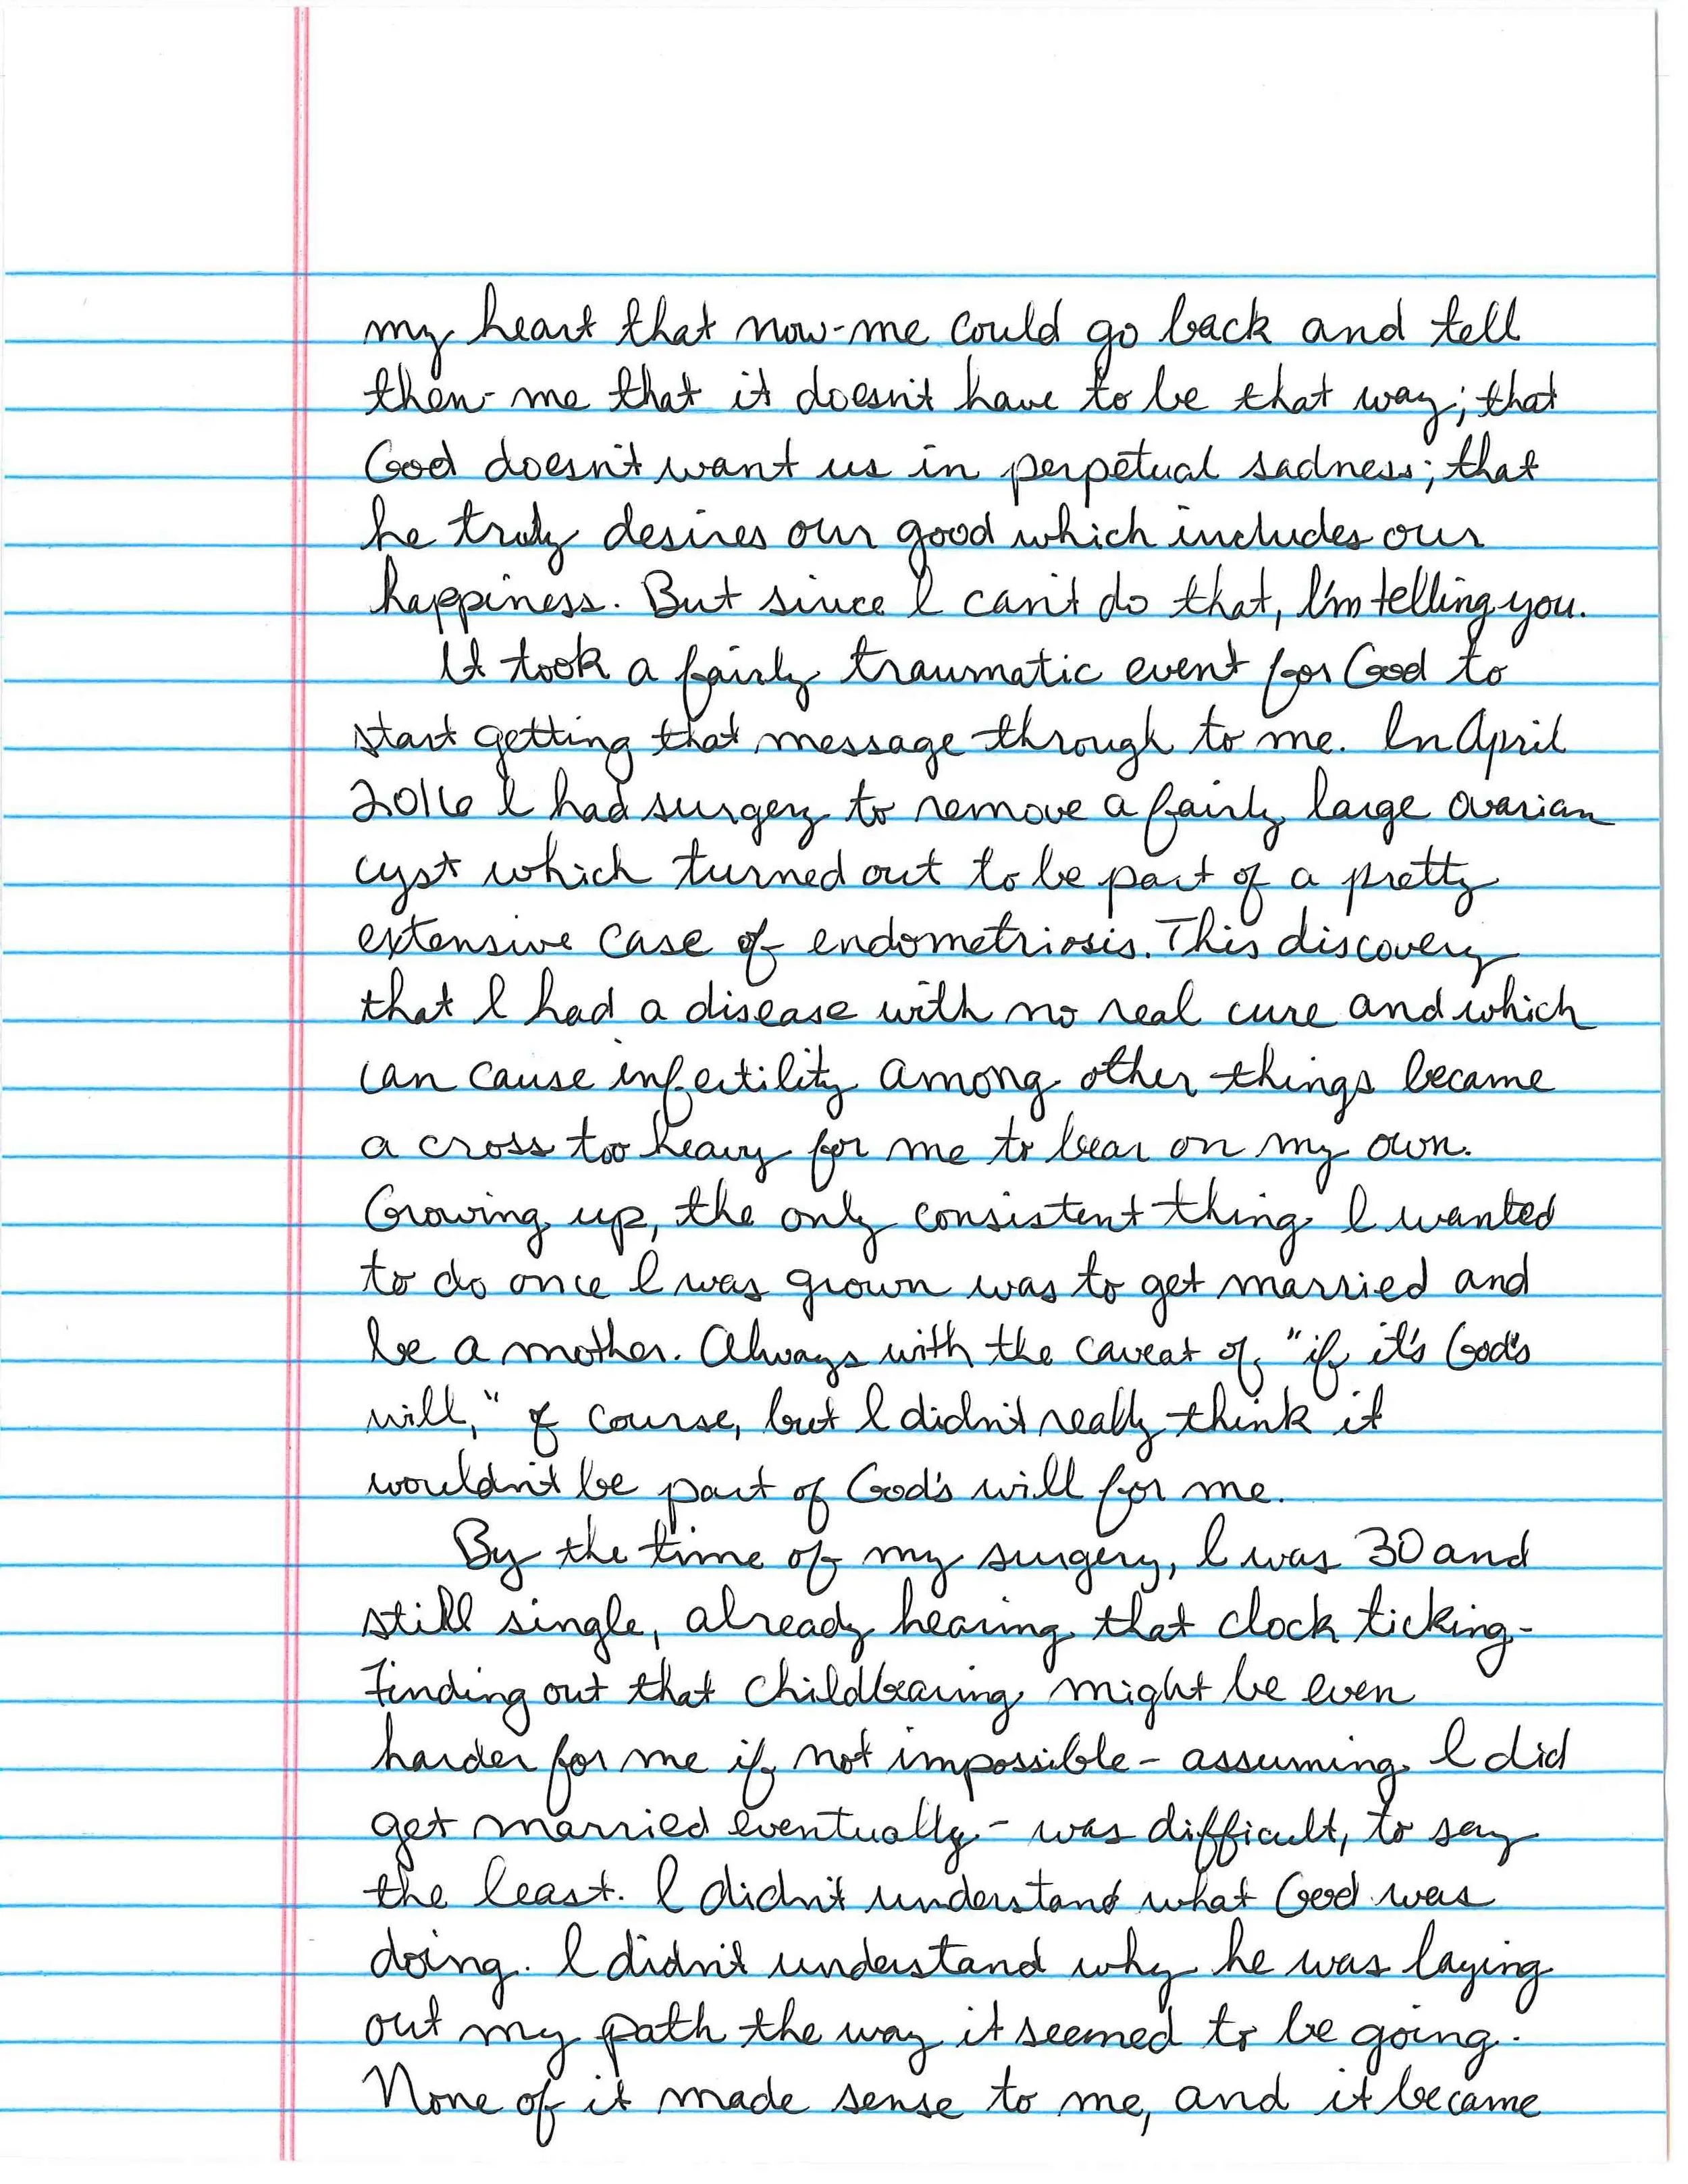 my heart that now-me could go back and tell
then-me that it doesn't have to be that way; that
God doesn't want us in perpetual sadness; that
he truly desires our good which includes our
happiness. But since I can't do that, I'm telling you.
It took a fairly traumatic event for God to
start getting that message through to me. In April
2016 I had surgery to remove a fairly large ovarian
cyst which turned out to be part of a pretty
extensive case of endometriosis. This discovery
that I had a disease with no real cure and which
can cause infertility among other things became
a cross too heavy for me to bear on my own.
Growing up, the only consistent thing I wanted
to do once I was grown was to get married and
be a mother. Always with the caveat of, "if it's God's
will," of course, but I didn't really think it
wouldn't be part of God's will for me.
By the time of my surgery, I was 30 and
still single, already hearing that clock ticking.
Finding out that childbearing might be even
harder for me if not impossible - assuming I did
get married eventually - was difficult, to say
the least. I didn't understand what God was
doing. I didn't understand why he was laying
out my path the way it seemed to be going.
None of it made sense to me, and it became